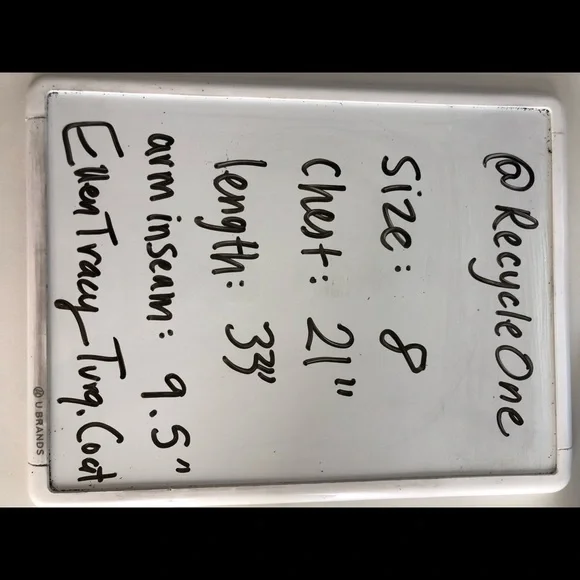 @RecycleOne
Size: 8
Chest: 21"
length: 33"
arm inseam: 9.5"
Ellen Tracy_Turq. Coat
U BRANDS